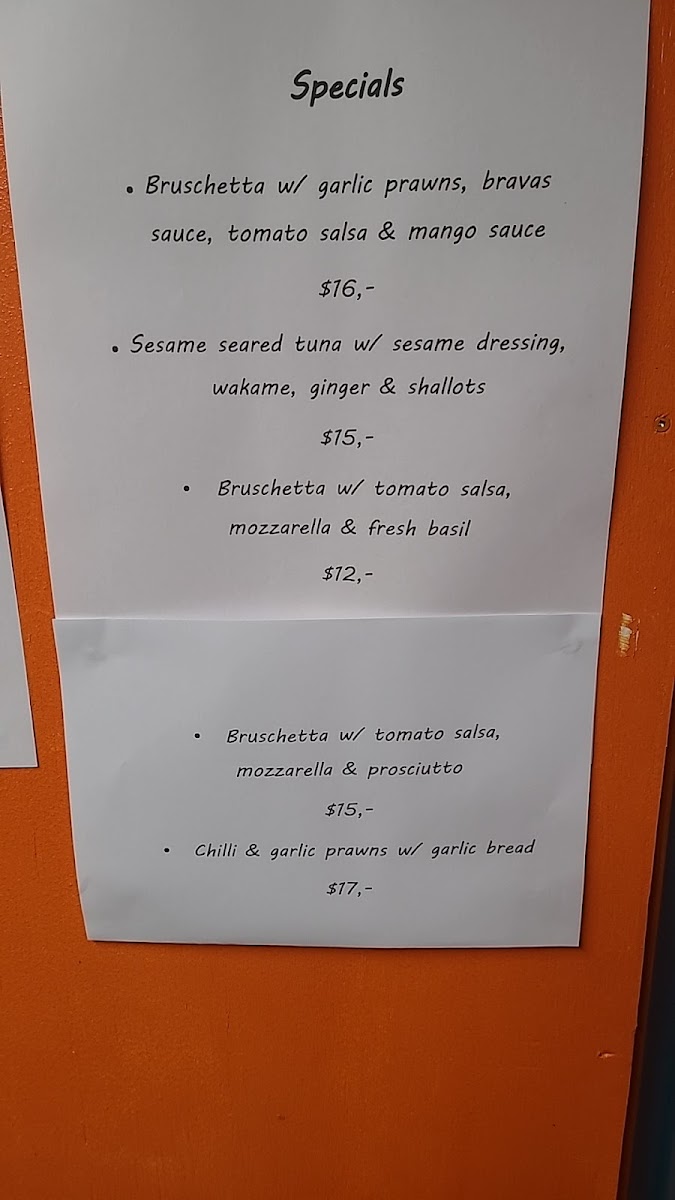 Specials
• Bruschetta w/ garlic prawns, bravas
sauce, tomato salsa & mango sauce
$16,-
• Sesame seared tuna w/ sesame dressing,
wakame, ginger & shallots
$15,-
• Bruschetta w/ tomato salsa,
mozzarella & fresh basil
$12,-
• Bruschetta w/ tomato salsa,
mozzarella & prosciutto
$15,-
• Chilli & garlic prawns w/ garlic bread
$17,-